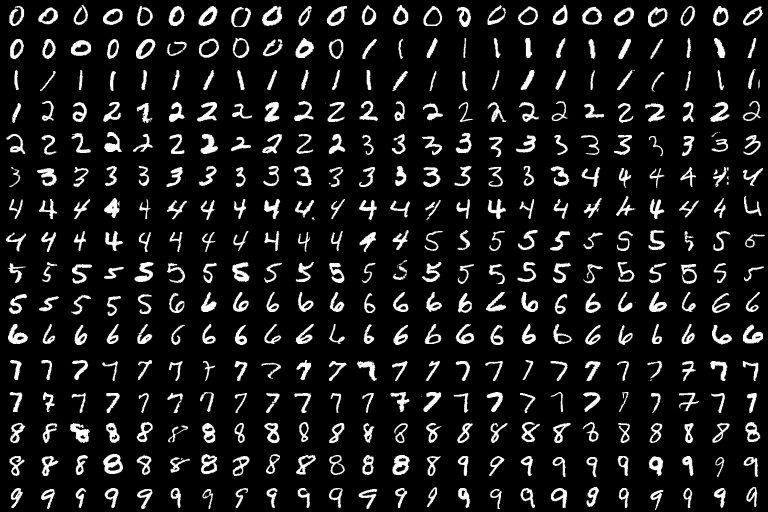 0 0 0 0 0 0 0 0 0 0 0 0 0 0 0 0 0 0 0 0 0 0 0 0
0 0 0 0 0 0 0 0 0 0 0 1 1 1 1 1 1 1 1 1 1 1 1 1
1 1 1 1 1 1 1 1 1 1 1 1 1 1 1 1 1 1 1 1 1 1 1 1
1 2 2 2 2 2 2 2 2 2 2 2 2 2 2 2 2 2 2 2 2 2 2 2
2 2 2 2 2 2 2 2 2 2 2 3 3 3 3 3 3 3 3 3 3 3 3 3
3 3 3 3 3 3 3 3 3 3 3 3 3 3 3 3 3 3 4 4 4 4 4 4
4 4 4 4 4 4 4 4 4 4 4 4 4 4 4 4 4 4 4 4 4 4 4 4
4 4 4 4 4 4 4 4 4 4 4 4 4 5 5 5 5 5 5 5 5 5 5 5
5 5 5 5 5 5 5 5 5 5 5 5 5 5 5 5 5 5 5 5 5 5 5 5
5 5 5 5 5 6 6 6 6 6 6 6 6 6 6 6 6 6 6 6 6 6 6 6
6 6 6 6 6 6 6 6 6 6 6 6 6 6 6 6 6 6 6 6 6 6 6 6
7 7 7 7 7 7 7 7 7 7 7 7 7 7 7 7 7 7 7 7 7 7 7 7
7 7 7 7 7 7 7 7 7 7 7 7 7 7 7 7 7 7 7 7 7 7 7 7
8 8 8 8 8 8 8 8 8 8 8 8 8 8 8 8 8 8 8 8 8 8 8 8
8 8 8 8 8 8 8 8 8 8 8 8 8 8 9 9 9 9 9 9 9 9 9 9
9 9 9 9 9 9 9 9 9 9 9 9 9 9 9 9 9 9 9 9 9 9 9 9